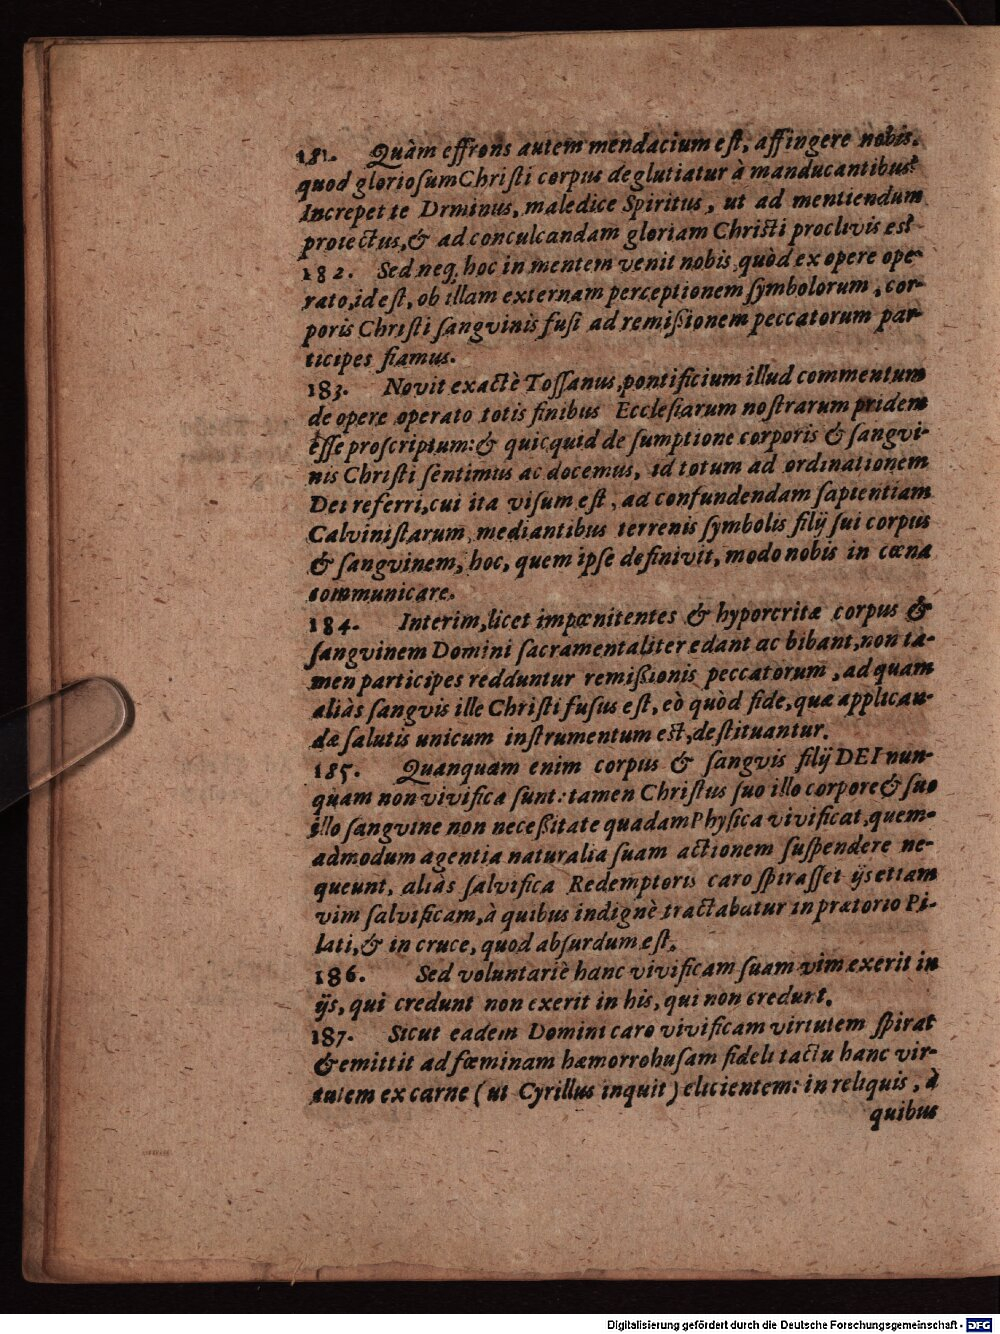 181. Quàm effrons autem mendacium eſt, affingere nobis.
quod glorioſum Chriſti corpus deglutiatur à manducantibus?
Increpet te Drminus, maledice Spiritus, ut ad mentiendum
protectus, & ad conculcandam gloriam Chriſti proclivis eſt
182. Sed neq, hoc in mentem venit nobis, quòd ex opere ope-
rato, id eſt, ob illam externam perceptionem ſymbolorum, cor-
poris Chriſti ſangvinis fuſi ad remiſſionem peccatorum par-
ticipes fiamus.
183. Novit exactè Toſſanus, pontificium illud commentum
de opere operato totis finibus Eccleſiarum noſtrarum pridem
eſſe proſcriptum: & quicquid de ſumptione corporis & ſangvi-
nis Chriſti ſentimus ac docemus, id totum ad ordinationem
Dei referri, cui ita viſum eſt, ad confundendam ſapientiam
Calviniſtarum, mediantibus terrenis ſymbolis filij ſui corpus
& ſangvinem, hoc, quem ipſe definivit, modo nobis in cœna
communicare.
184. Interim, licet impœnitentes & hyporcritæ corpus &
ſangvinem Domini ſacramentaliter edant ac bibant, non ta-
men participes redduntur remiſſionis peccatorum, ad quam
aliàs ſangvis ille Chriſti fuſus eſt, eò quòd fide, quæ applican-
dæ ſalutis unicum inſtrumentum eſt, deſtituantur.
185. Quanquam enim corpus & ſangvis filij DEI nun-
quam non vivifica ſunt: tamen Chriſtus ſuo illo corpore & ſuo
illo ſangvine non neceſſitate quadam Phyſica vivificat, quem-
admodum agentia naturalia ſuam actionem ſuſpendere ne-
queunt, aliàs ſalvifica Redemptoris caro ſpiraſſet ijs etiam
vim ſalvificam, à quibus indignè tractabatur in prætorio Pi-
lati, & in cruce, quod abſurdum eſt.
186. Sed voluntariè hanc vivificam ſuam vim exerit in
ijs, qui credunt non exerit in his, qui non credunt.
187. Sicut eadem Domini caro vivificam virtutem ſpirat
& emittit ad fœminam hæmorrohuſam fideli tactu hanc vir-
tutem ex carne (ut Cyrillus inquit) elicientem: in reliquis, à
quibus
Digitalisierung gefördert durch die Deutsche Forschungsgemeinschaft - DFG